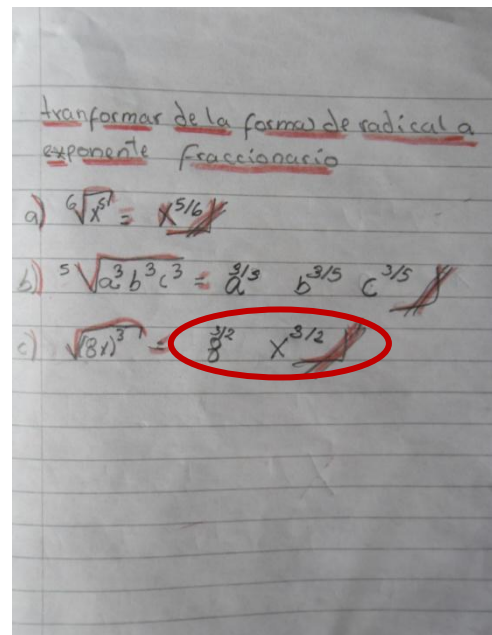 tranformar de la forma de radical a
exponente fraccionario
a) ⁶√x⁵ = x^5/6
b) ⁵√a³b³c³ = a^3/5 b^3/5 c^3/5
c) √(8x)³ = 8^3/2 x^3/2